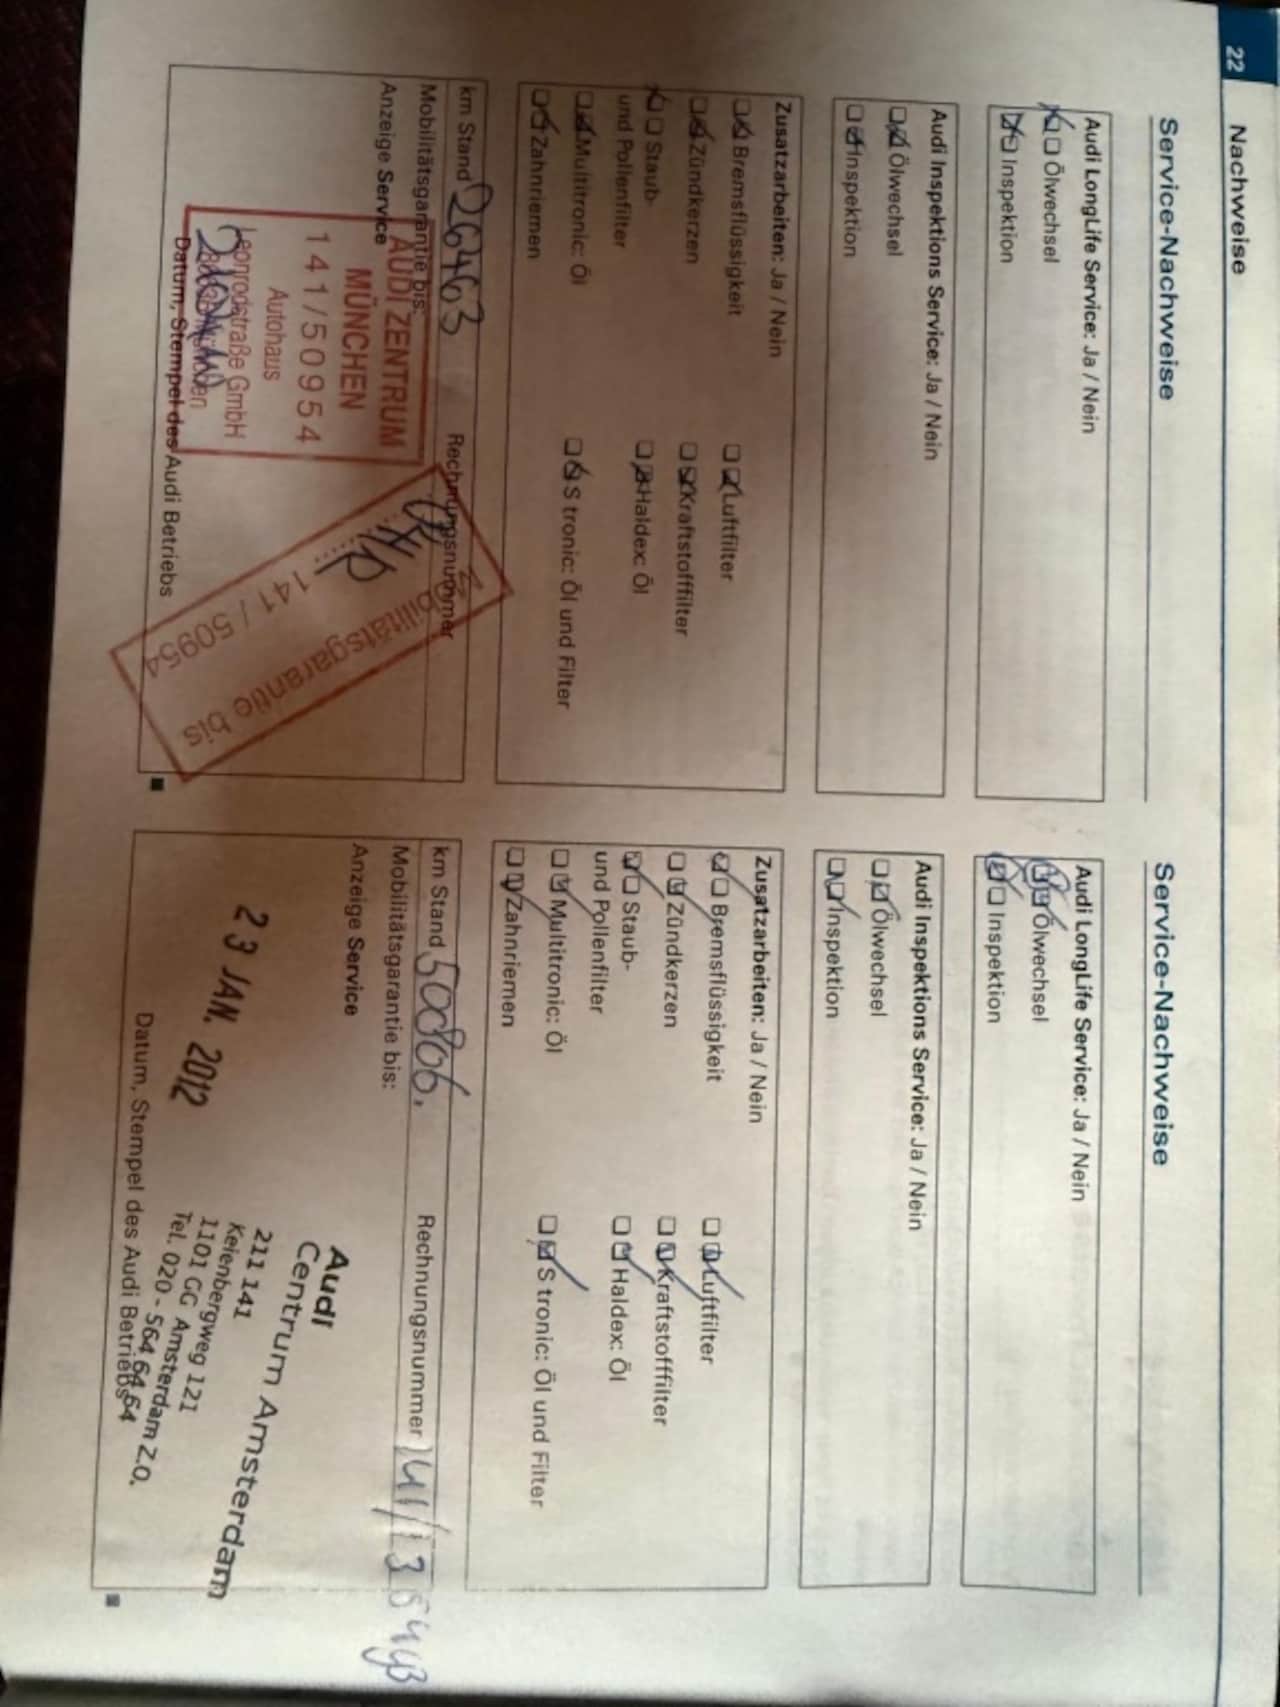 22 Nachweise
Service-Nachweise
Audi LongLife Service: Ja / Nein
Ölwechsel
Inspektion
Audi Inspektions Service: Ja / Nein
Ölwechsel
Inspektion
Zusatzarbeiten: Ja / Nein
Bremsflüssigkeit
Luftfilter
Zündkerzen
Kraftstofffilter
Staub-
und Pollenfilter
Haldex: Öl
Multitronic: Öl
S tronic: Öl und Filter
Zahnriemen
km Stand 26463
Rechnungsnummer
Mobilitätsgarantie bis:
Anzeige Service
AUDI ZENTRUM
MÜNCHEN
141/50954
Autohaus
Leonrodstraße GmbH
Mobilitätsgarantie bis
141 / 50954
Datum, Stempel des Audi Betriebs
Service-Nachweise
Audi LongLife Service: Ja / Nein
Ölwechsel
Inspektion
Audi Inspektions Service: Ja / Nein
Ölwechsel
Inspektion
Zusatzarbeiten: Ja / Nein
Bremsflüssigkeit
Luftfilter
Zündkerzen
Kraftstofffilter
Staub-
und Pollenfilter
Haldex: Öl
Multitronic: Öl
S tronic: Öl und Filter
Zahnriemen
km Stand 50806.
Rechnungsnummer
Mobilitätsgarantie bis:
Anzeige Service
23 JAN. 2012
Audi
Centrum Amsterdam
211 141
Keienbergweg 121
1101 GG Amsterdam Z.O.
Tel. 020 - 564 64 64
Datum, Stempel des Audi Betriebs